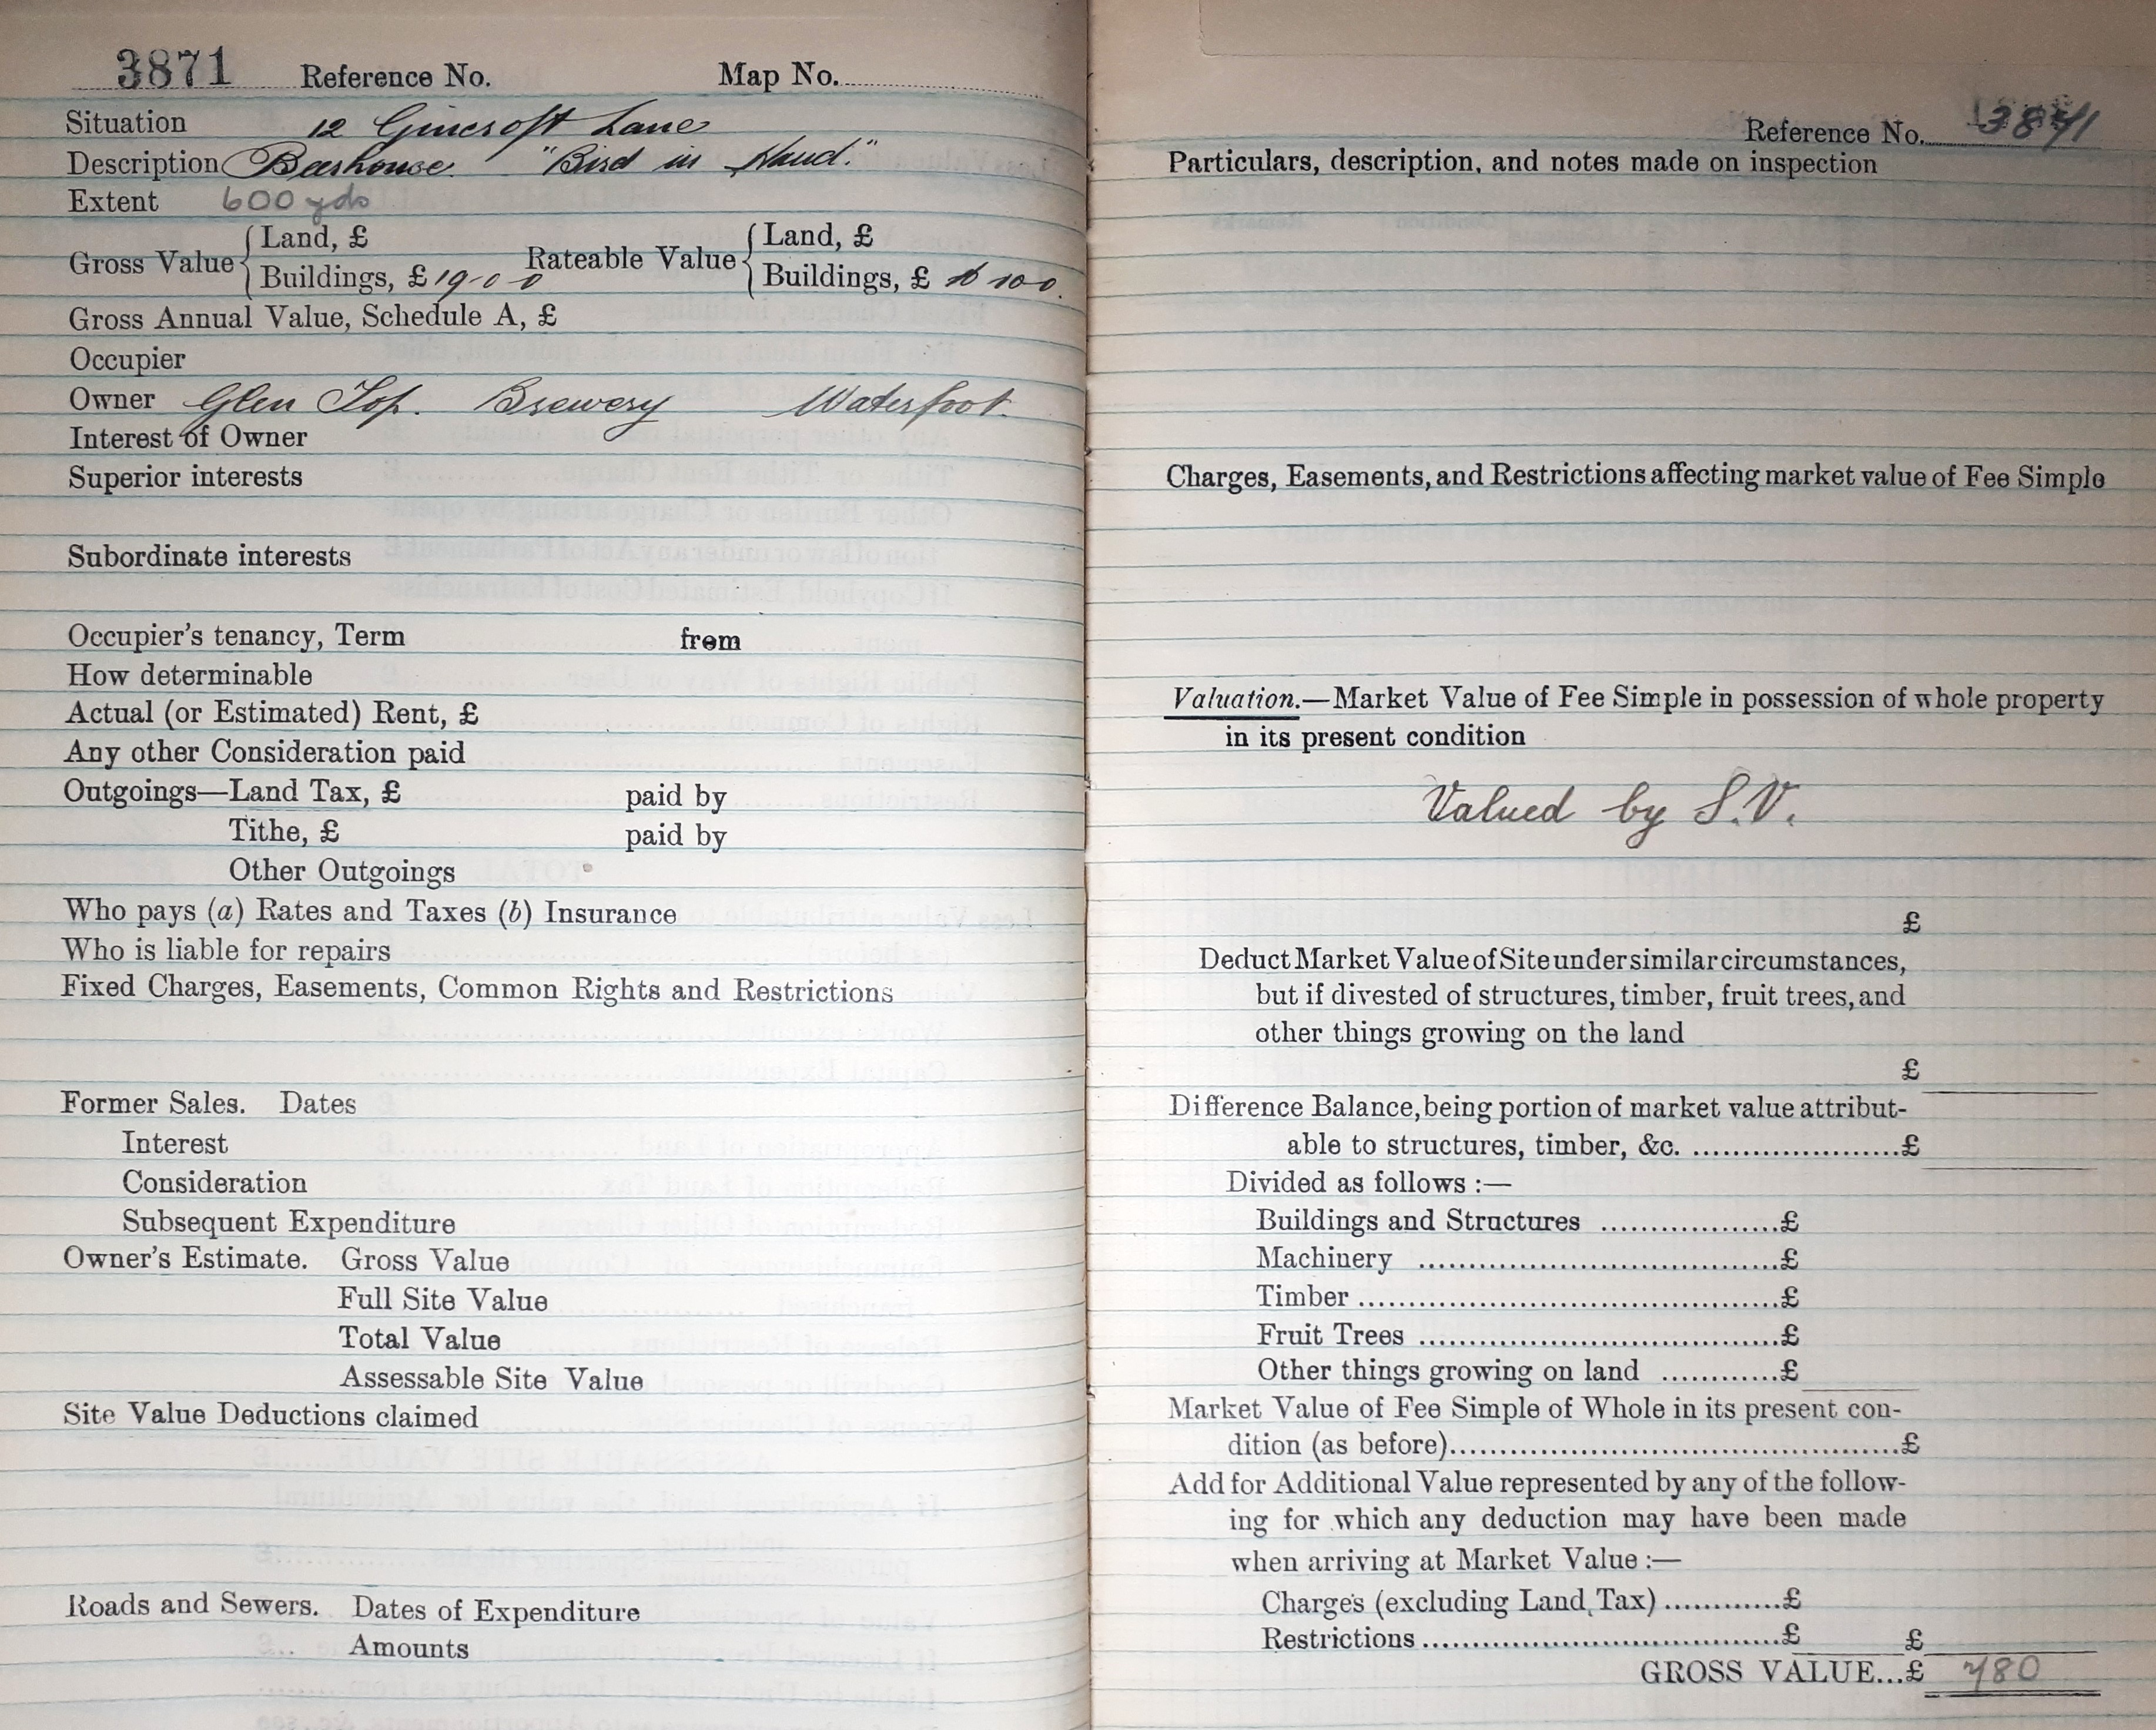 3871 Reference No. Map No.
Situation 12 Gincroft Lane
Description Beerhouse. "Bird in Hand."
Extent 600 yds
Gross Value { Land, £ Rateable Value { Land, £
Buildings, £ 19-0-0 Buildings, £ 10-0
Gross Annual Value, Schedule A, £
Occupier
Owner Glen Top. Brewery Waterfoot.
Interest of Owner
Superior interests
Subordinate interests
Occupier's tenancy, Term from
How determinable
Actual (or Estimated) Rent, £
Any other Consideration paid
Outgoings—Land Tax, £ paid by
Tithe, £ paid by
Other Outgoings
Who pays (a) Rates and Taxes (b) Insurance
Who is liable for repairs
Fixed Charges, Easements, Common Rights and Restrictions
Former Sales. Dates
Interest
Consideration
Subsequent Expenditure
Owner's Estimate. Gross Value
Full Site Value
Total Value
Assessable Site Value
Site Value Deductions claimed
Roads and Sewers. Dates of Expenditure
Amounts
Reference No. 3871
Particulars, description, and notes made on inspection
Charges, Easements, and Restrictions affecting market value of Fee Simple
Valuation.—Market Value of Fee Simple in possession of whole property
in its present condition
Valued by S.V.
£
Deduct Market Value of Site under similar circumstances,
but if divested of structures, timber, fruit trees, and
other things growing on the land
£
Difference Balance, being portion of market value attribut-
able to structures, timber, &c. .....................£
Divided as follows :—
Buildings and Structures ..................£
Machinery ....................................£
Timber..........................................£
Fruit Trees ....................................£
Other things growing on land ............£
Market Value of Fee Simple of Whole in its present con-
dition (as before)............................................£
Add for Additional Value represented by any of the follow-
ing for which any deduction may have been made
when arriving at Market Value :—
Charges (excluding Land Tax)............£
Restrictions......................................£ £
GROSS VALUE...£ 480